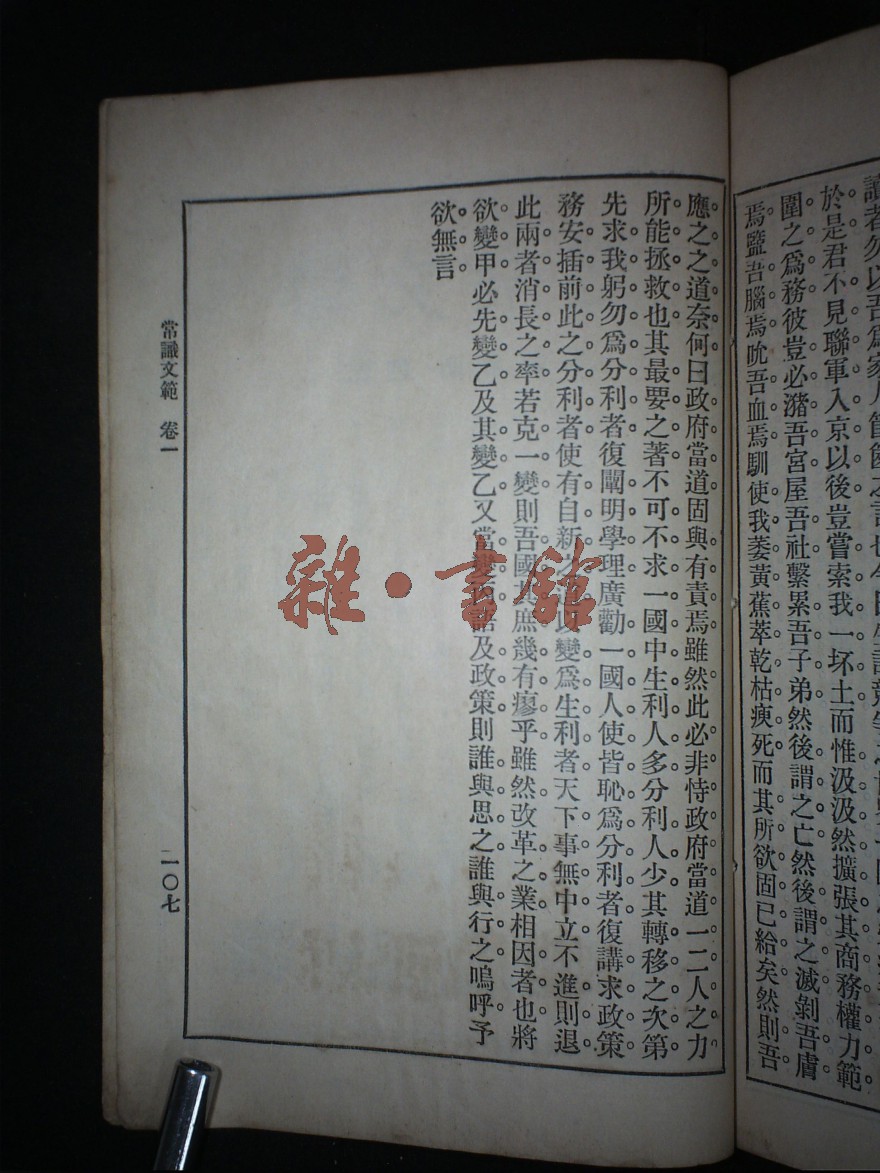 讀者勿以吾爲家人筐篋之語也今日生計競爭之世界
於是君不見聯軍入京以後豈嘗索我一坏土而惟汲汲然擴張其商務權力範
圍之爲務彼豈必瀦吾宮屋吾社繫累吾子弟然後謂之亡然後謂之滅剝吾膚
焉鹽吾腦焉吮吾血焉馴使我萎黃蕉萃乾枯瘐死而其所欲固已給矣然則吾
應之之道奈何曰政府當道固與有責焉雖然此必非恃政府當道一二人之力
所能拯救也其最要之著不可不求一國中生利人多分利人少其轉移之次第
先求我躬勿爲分利者復闡明學理廣勸一國人使皆恥爲分利者復講求政策
務安插前此之分利者使有自新之道以變爲生利者天下事無中立不進則退
此兩者消長之率若克一變則吾國其庶幾有瘳乎雖然改革之業相因者也將
欲變甲必先變乙及其變乙又當變丙語及政策則誰與思之誰與行之嗚呼予
欲無言
常識文範 卷一
一〇七
雜·書館